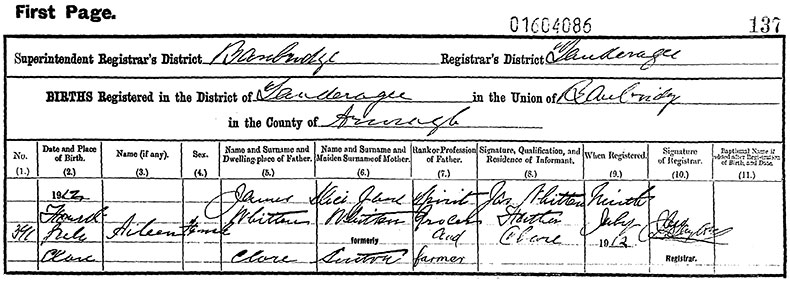 First Page.
01604086
137
Superintendent Registrar's District Banbridge Registrar's District Tanderagee
BIRTHS Registered in the District of Tanderagee in the Union of Banbridge
in the County of Armagh
No. Date and Place of Birth. Name (if any). Sex. Name and Surname and Dwelling-place of Father. Name and Surname and Maiden Surname of Mother. Rank or Profession of Father. Signature, Qualification, and Residence of Informant. When Registered. Signature of Registrar. Baptismal Name if added after Registration of Birth, and Date.
(1.) (2.) (3.) (4.) (5.) (6.) (7.) (8.) (9.) (10.) (11.)
1912 James Alice Jane Spirit Jas Whitten Ninth
Fourth Whitten Whitten Grocer Father July
July Aileen Female formerly and Clare 1912
Clare Clare Sinton farmer Registrar.